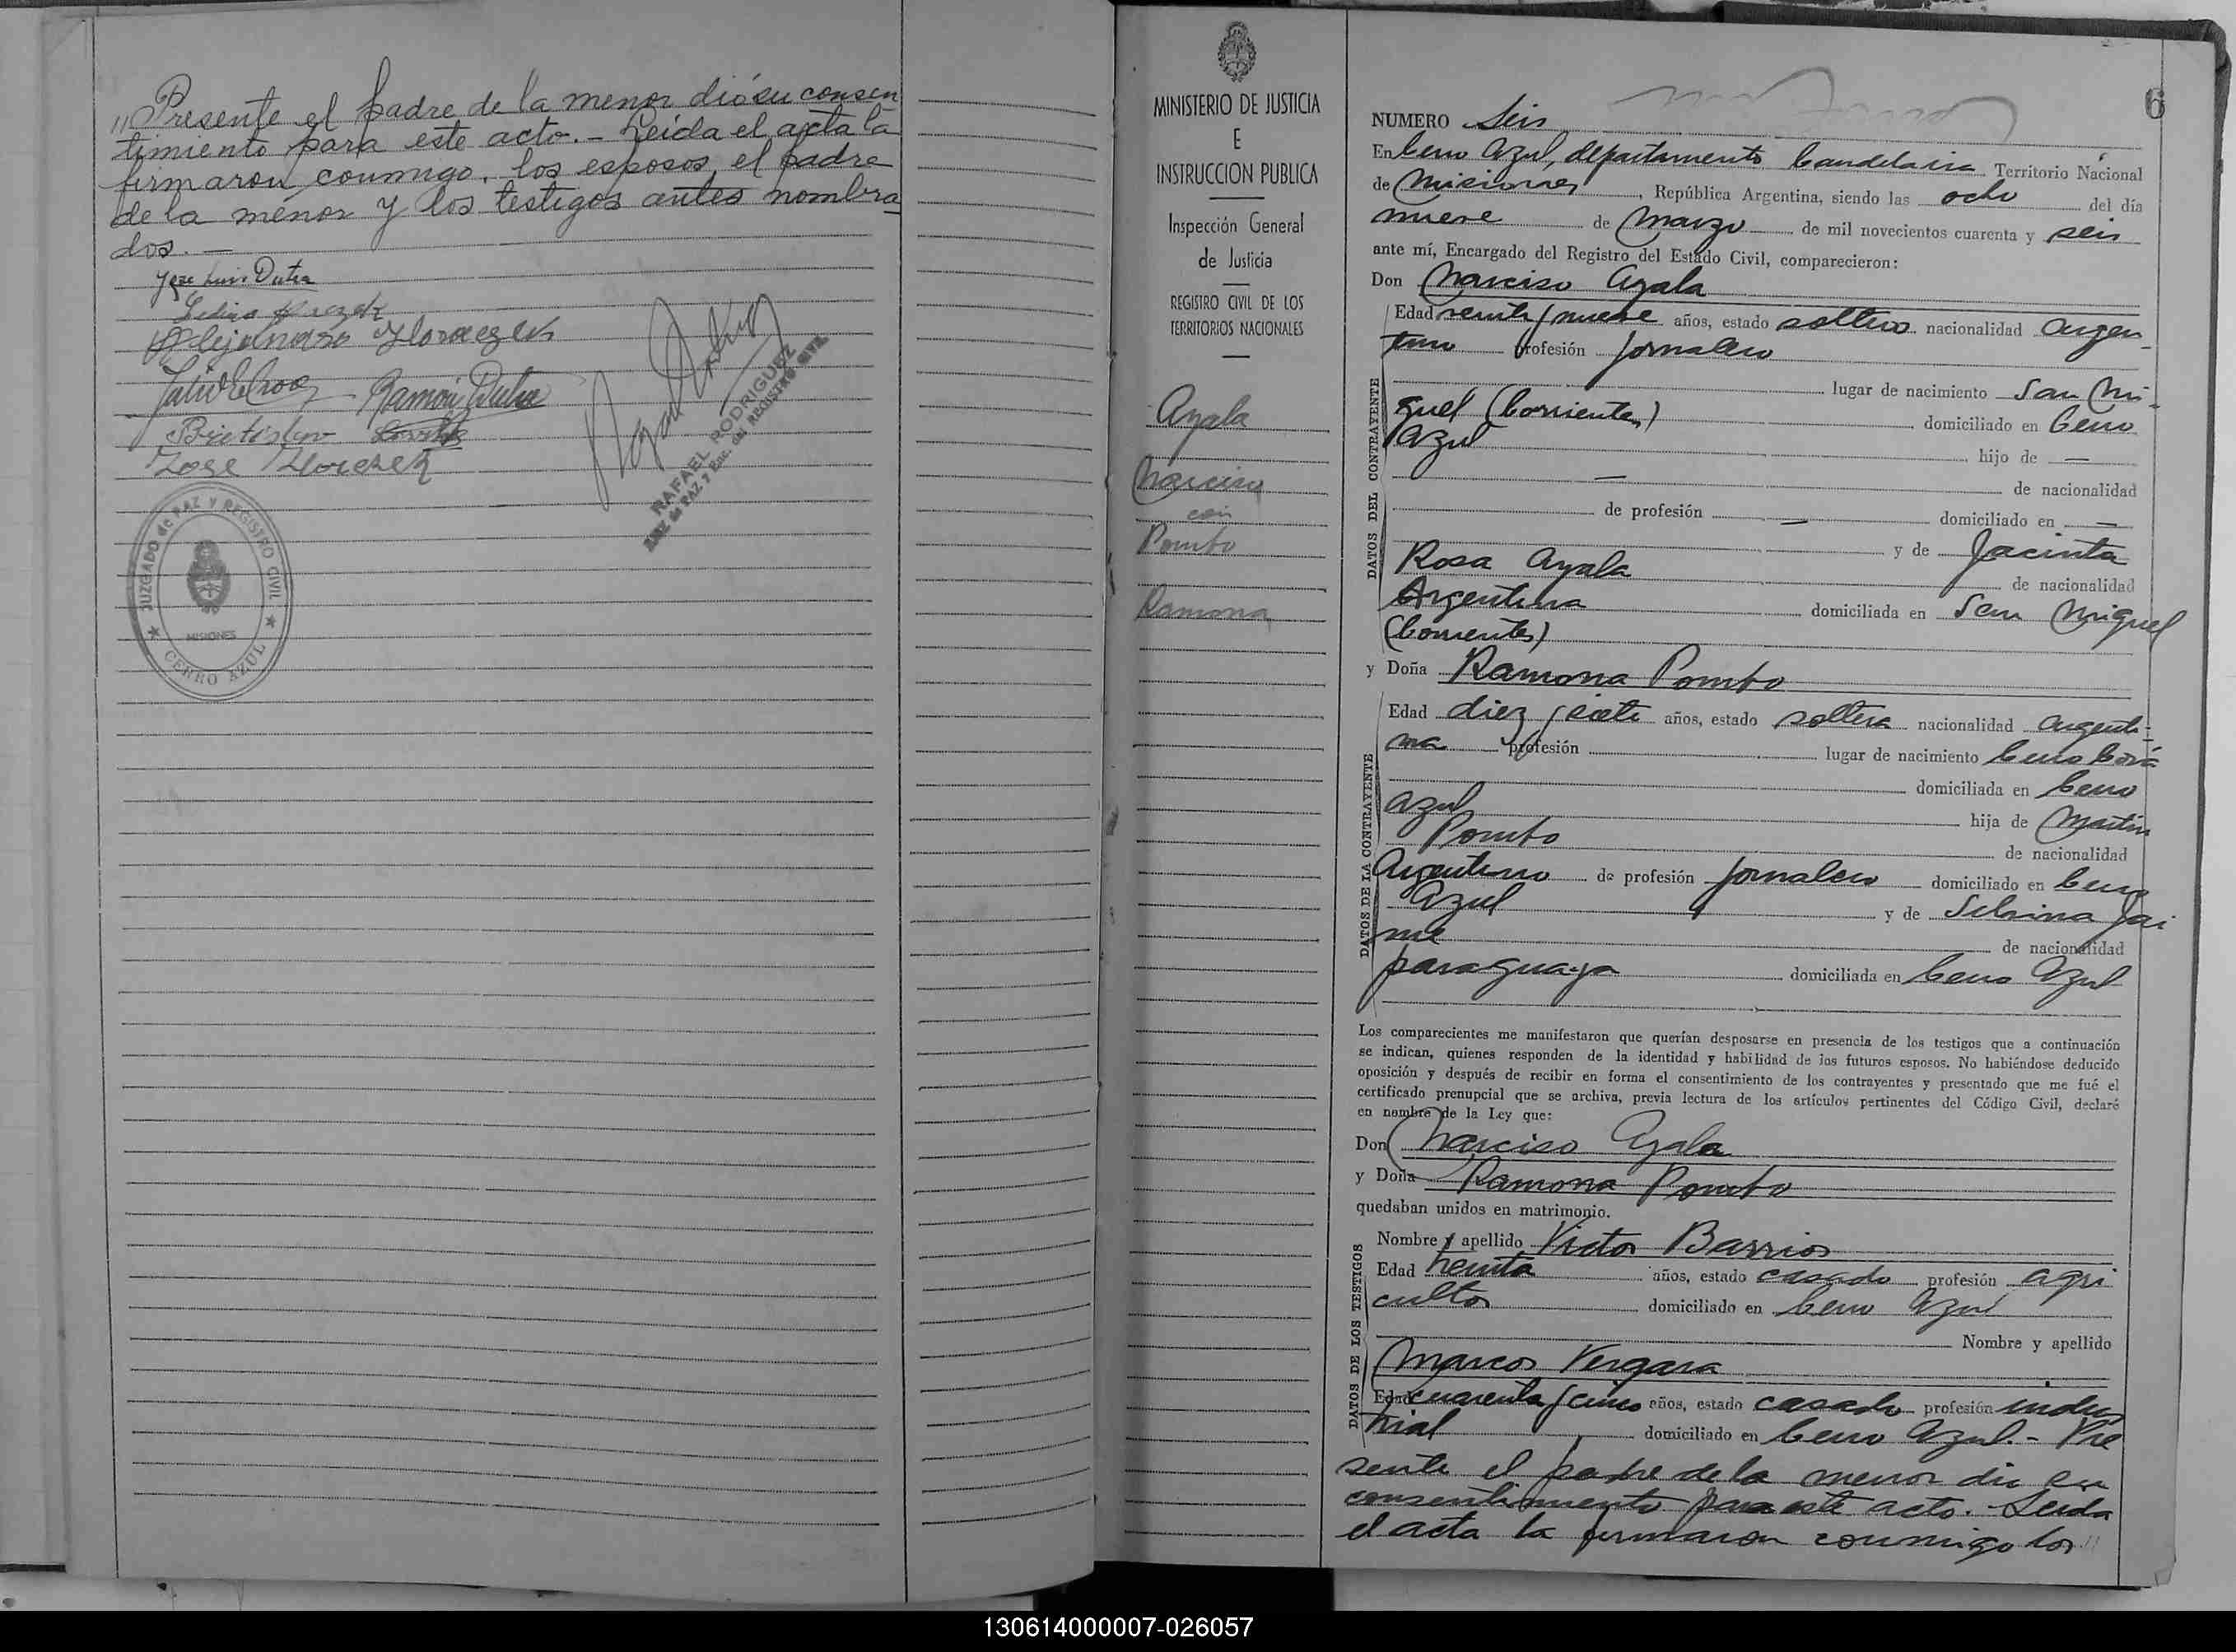 "Presente el padre de la menor dió su consen
timiento para este acto.- Leída el acta la
firmaron conmigo, los esposos, el padre
de la menor y los testigos antes nombra
dos.-
Jose Luis Dutra
Ramón Dutra
RAFAEL RODRIGUEZ
JUEZ de PAZ y Enc. del REGISTRO CIVIL
JUZGADO de PAZ Y REGISTRO CIVIL
MISIONES
CERRO AZUL
MINISTERIO DE JUSTICIA
E
INSTRUCCION PUBLICA
Inspección General
de Justicia
REGISTRO CIVIL DE LOS
TERRITORIOS NACIONALES
Ayala
Narciso
con
Pombo
Ramona
6
NUMERO Seis
En Cerro Azul, departamento Candelaria Territorio Nacional
de Misiones, República Argentina, siendo las ocho del día
nueve de Marzo de mil novecientos cuarenta y seis
ante mí, Encargado del Registro del Estado Civil, comparecieron:
Don Narciso Ayala
DATOS DEL CONTRAYENTE
Edad veinte y nueve años, estado soltero nacionalidad argen
tino profesión jornalero
lugar de nacimiento San Mi-
guel (Corrientes) domiciliado en Cerro
Azul hijo de —
— de nacionalidad
de profesión — domiciliado en —
y de Jacinta
Rosa Ayala de nacionalidad
Argentina domiciliada en San Miguel
(Corrientes)
y Doña Ramona Pombo
DATOS DE LA CONTRAYENTE
Edad diez y siete años, estado soltera nacionalidad argenti-
na profesión lugar de nacimiento Cerro Corá
domiciliada en Cerro
Azul hija de Martin
Pombo de nacionalidad
Argentino de profesión jornalero domiciliado en Cerro
Azul y de Silvina Jai
me de nacionalidad
paraguaya domiciliada en Cerro Azul
Los comparecientes me manifestaron que querían desposarse en presencia de los testigos que a continuación
se indican, quienes responden de la identidad y habilidad de los futuros esposos. No habiéndose deducido
oposición y después de recibir en forma el consentimiento de los contrayentes y presentado que me fué el
certificado prenupcial que se archiva, previa lectura de los artículos pertinentes del Código Civil, declaré
en nombre de la Ley que:
Don Narciso Ayala
y Doña Ramona Pombo
quedaban unidos en matrimonio.
DATOS DE LOS TESTIGOS
Nombre y apellido Victor Barrios
Edad treinta años, estado casado profesión agri
cultor domiciliado en Cerro Azul
Nombre y apellido
Marcos Vergara
Edad cuarenta y cinco años, estado casado profesión indus
trial domiciliado en Cerro Azul.- Pre
sente el padre de la menor dio su
consentimiento para este acto. Leida
el acta la firmaron conmigo los"
130614000007-026057